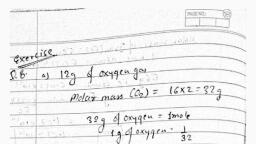 PAGE NO.
Exercise
Q.B. a) 12g of oxygen gas
Molar mass (O₂) = 16×2=32g
32g of oxygen = 1mole
1g of oxygen = 1/32